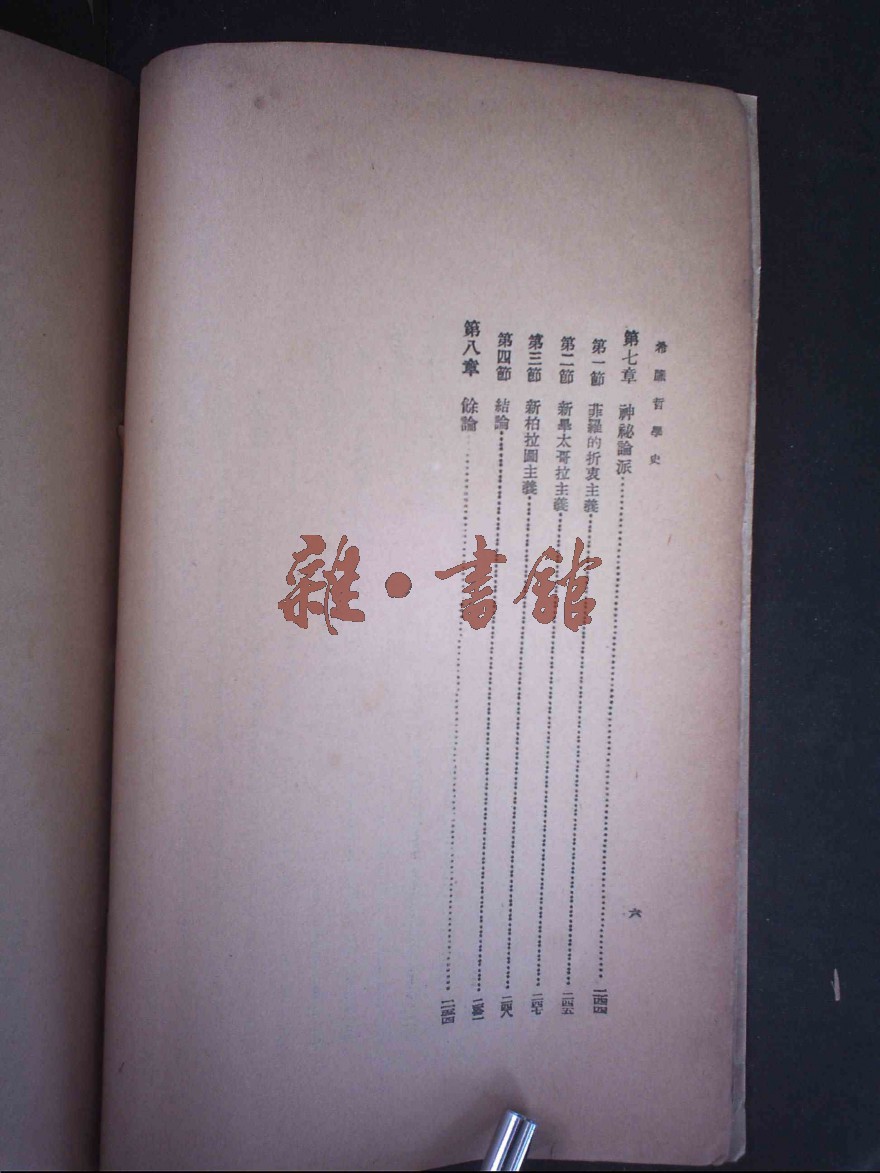 希臘哲學史
六
第七章 神祕論派……二四四
第一節 菲羅的折衷主義……二四五
第二節 新畢太哥拉主義……二四七
第三節 新柏拉圖主義……二四八
第四節 結論
第八章 餘論
雜·書館